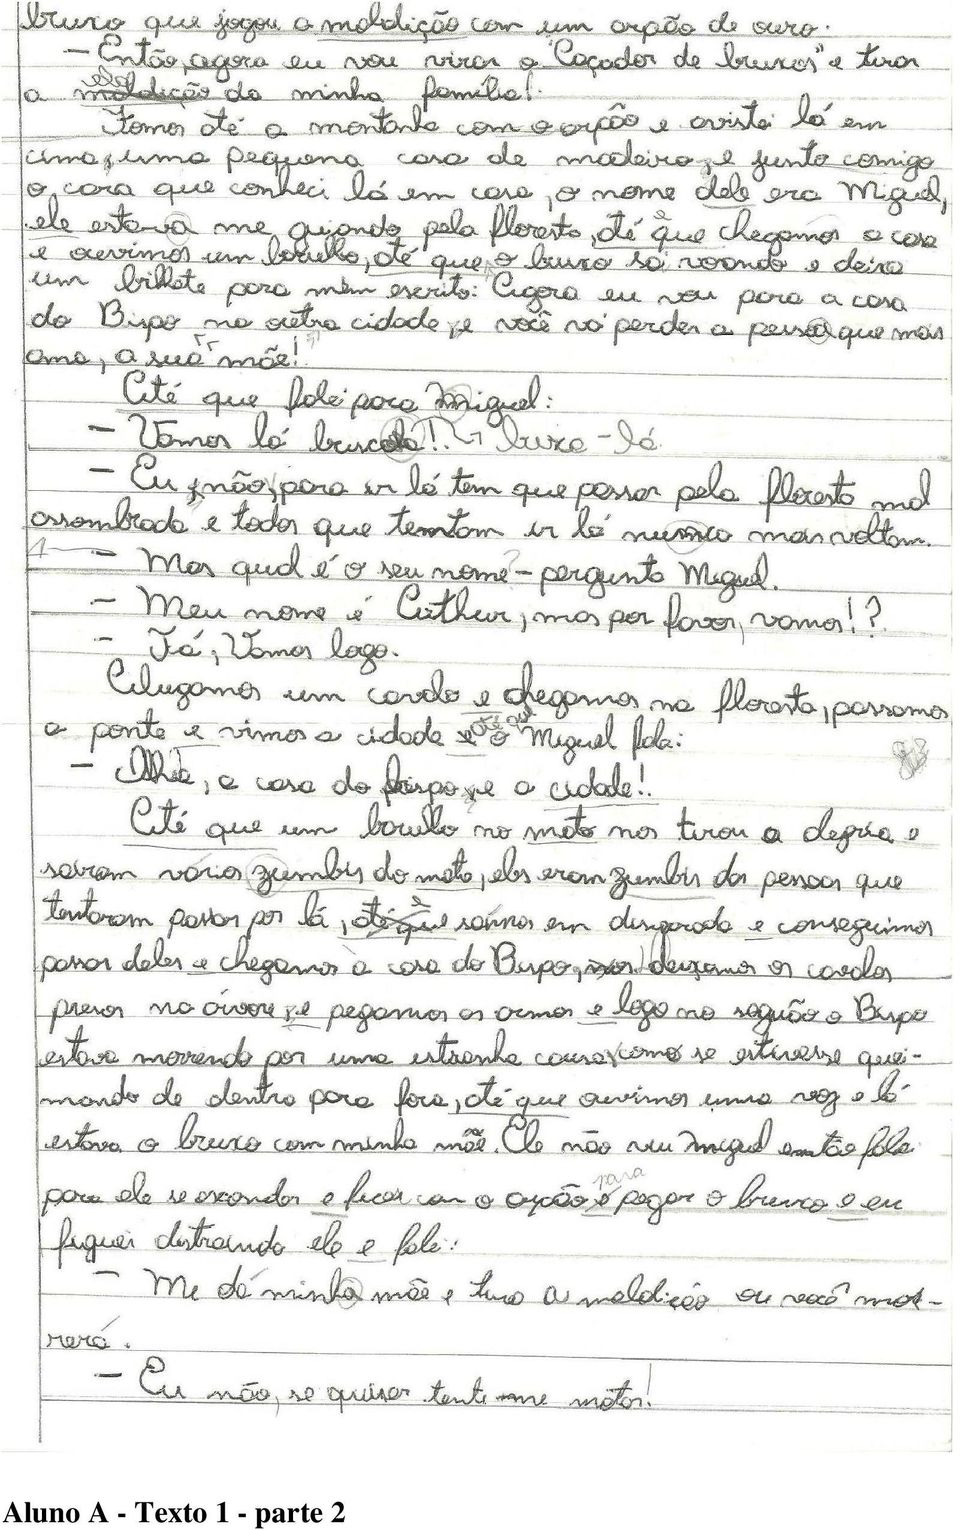 bruxo que jogou a maldição com um arpão de ouro.
- Então, agora eu vou virar o "Caçador de bruxos" e tirar
a ela da minha família!
Fomos até a montanha com o arpão e avistei lá em
cima, uma pequena casa de madeira, e junto comigo
o cara que conheci lá em casa, o nome dele era Miguel,
ele estava me guiando pela floresta, até que chegamos a casa
e ouvimos um barulho, até que o bruxo sai voando e deixa
um bilhete para mim escrito: Agora eu vou para a casa
do Bispo na outra cidade, e você vá perder a pessoa que mais
ama, a sua mãe!
Até que falei para Miguel:
- Vamos lá buscala!. ↳ busca-lá
- Eu, não, para ir lá tem que passar pela floresta mal
assombrada e todos que tentam ir lá nunca mais voltam.
- Mas qual é o seu nome? - pergunto Miguel.
- Meu nome é Arthur, mas por favor, vamos!?
- Tá, Vamos logo.
Alugamos um cavalo e chegamos na floresta, passamos
a ponte e vimos a cidade até que o Miguel fala:
- Olhe, a casa do bispo, e a cidade!.
Até que um barulho no mato nos tirou a alegria e
sairam vários zumbis do mato, eles eram zumbis das pessoas que
tentaram passar por lá, até que saímos em disparada e conseguimos
passar deles e chegamos a casa do Bispo, deixamos os cavalos
presos na árvore, e pegamos as armas e logo no saguão o Bispo
estava morrendo por uma estranha causa, como se estivesse quei-
mando de dentro para fora, até que ouvimos uma voz e lá
estava o bruxo com minha mãe. Ele não viu Miguel então falei
para ele se esconder e ficar com o arpão e para pegar o bruxo e eu
fiquei distraindo ele e falei:
- Me dá minha mãe e tira a maldição ou você mor-
rerá.
- Eu não, se quiser tente-me matar!
Aluno A - Texto 1 - parte 2